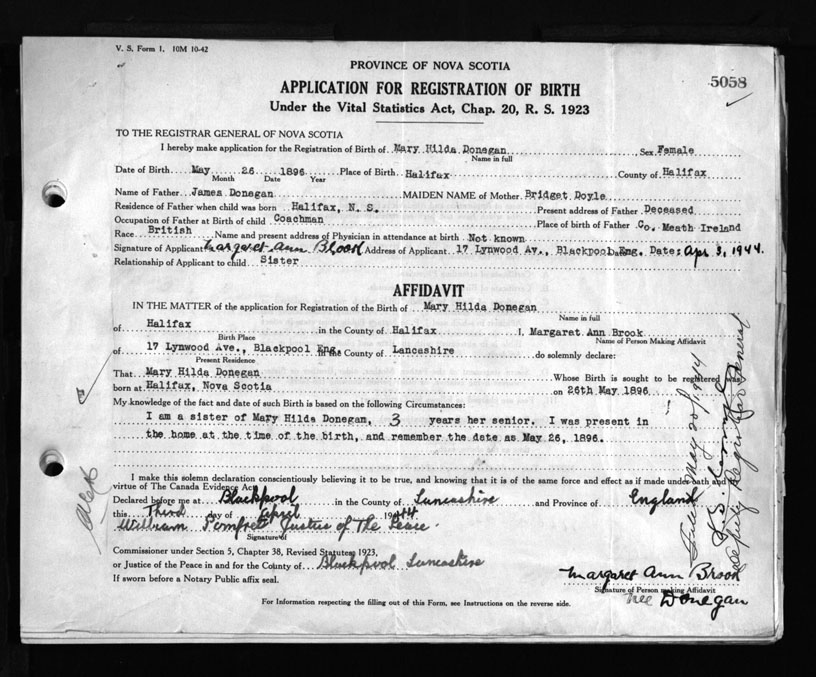 V. S. Form 1. 10M 10-42
PROVINCE OF NOVA SCOTIA
5058
APPLICATION FOR REGISTRATION OF BIRTH
Under the Vital Statistics Act, Chap. 20, R. S. 1923
TO THE REGISTRAR GENERAL OF NOVA SCOTIA
I hereby make application for the Registration of Birth of Mary Hilda Donegan, Sex Female
Name in full
Date of Birth May 26 1896 Place of Birth Halifax County of Halifax
Month Date Year
Name of Father James Donegan MAIDEN NAME of Mother Bridget Doyle
Residence of Father when child was born Halifax, N. S. Present address of Father Deceased
Occupation of Father at Birth of child Coachman Place of birth of Father Co. Meath Ireland
Race British Name and present address of Physician in attendance at birth Not known
Signature of Applicant Margaret Ann Brook Address of Applicant 17 Lynwood Av., Blackpool Eng. Date: Apr 3, 1944.
Relationship of Applicant to child Sister
AFFIDAVIT
IN THE MATTER of the application for Registration of the Birth of Mary Hilda Donegan
Name in full
of Halifax in the County of Halifax I, Margaret Ann Brook
Birth Place Name of Person Making Affidavit
of 17 Lynwood Ave., Blackpool Eng in the County of Lancashire do solemnly declare:
Present Residence
That Mary Hilda Donegan Whose Birth is sought to be registered was
born at Halifax, Nova Scotia on 26th May 1896
My knowledge of the fact and date of such Birth is based on the following Circumstances:
I am a sister of Mary Hilda Donegan, 3 years her senior. I was present in
the home at the time of the birth, and remember the date as May 26, 1896.
I make this solemn declaration conscientiously believing it to be true, and knowing that it is of the same force and effect as if made under oath and
virtue of The Canada Evidence Act
Declared before me at Blackpool in the County of Lancashire and Province of England
this Third day of April 1944
William Pomfret Justus of The Peace.
Signature of
Commissioner under Section 5, Chapter 38, Revised Statutes, 1923,
or Justice of the Peace in and for the County of Blackpool Lancashire
If sworn before a Notary Public affix seal.
Margaret Ann Brook
Signature of Person making Affidavit
nee Donegan
For Information respecting the filling out of this Form, see Instructions on the reverse side.
Filed May 20/1944
Deputy Registrar General